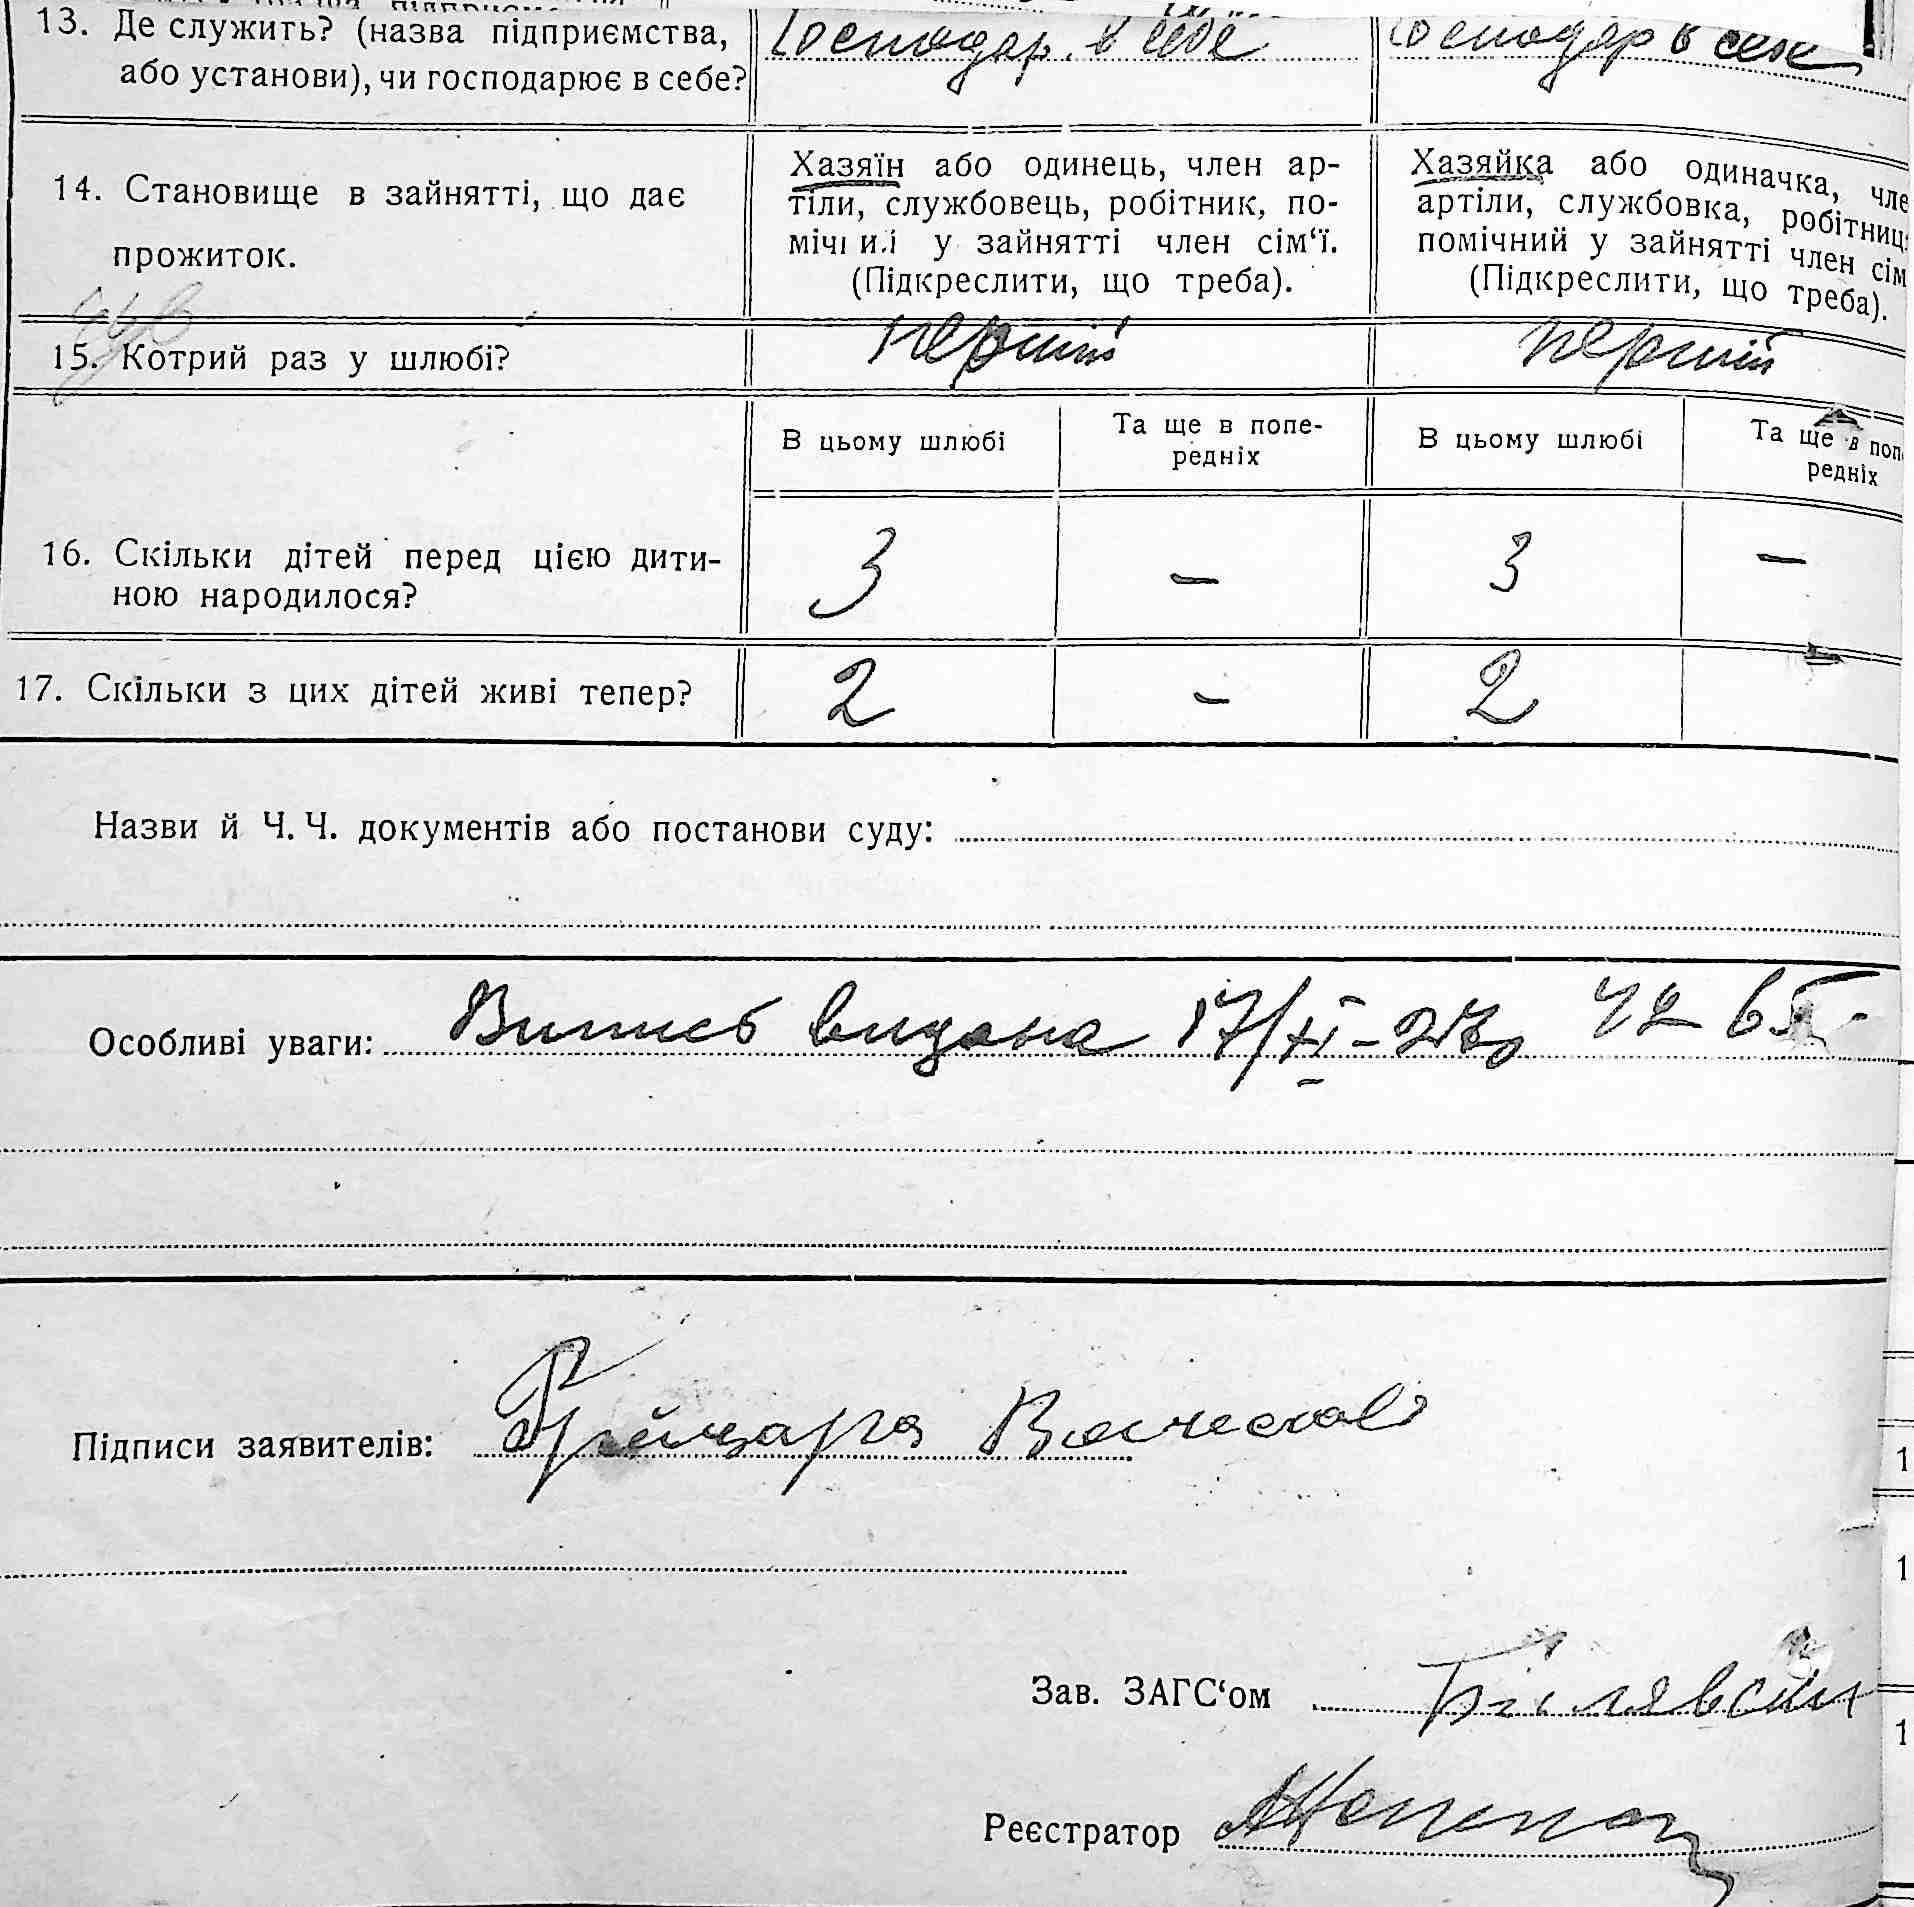 13. Де служить? (назва підприємства, Господар. в себе Господар в себе
або установи), чи господарює в себе?
14. Становище в зайнятті, що дає
прожиток.
Хазяїн або одинець, член ар-
тіли, службовець, робітник, по-
мічний у зайнятті член сім‘ї.
(Підкреслити, що треба).
Хазяйка або одиначка, чле
артіли, службовка, робітниц
помічний у зайнятті член сім
(Підкреслити, що треба).
15. Котрий раз у шлюбі? перший перший
В цьому шлюбі
Та ще в попе-
редніх
В цьому шлюбі
Та ще в попе
редніх
16. Скільки дітей перед цією дити-
ною народилося?
3 – 3 –
17. Скільки з цих дітей живі тепер? 2 – 2
Назви й Ч. Ч. документів або постанови суду:
Особливі уваги: Випись видана 17/XI–27р
Підписи заявителів:
Зав. ЗАГС‘ом
Реєстратор
1
1
1